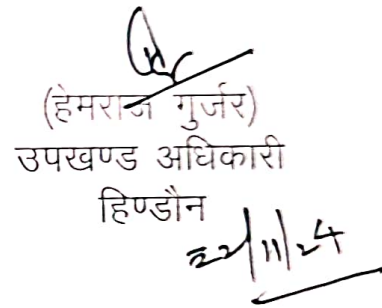 (हेमराज गुर्जर)
उपखण्ड अधिकारी
हिण्डौन
22/11/24